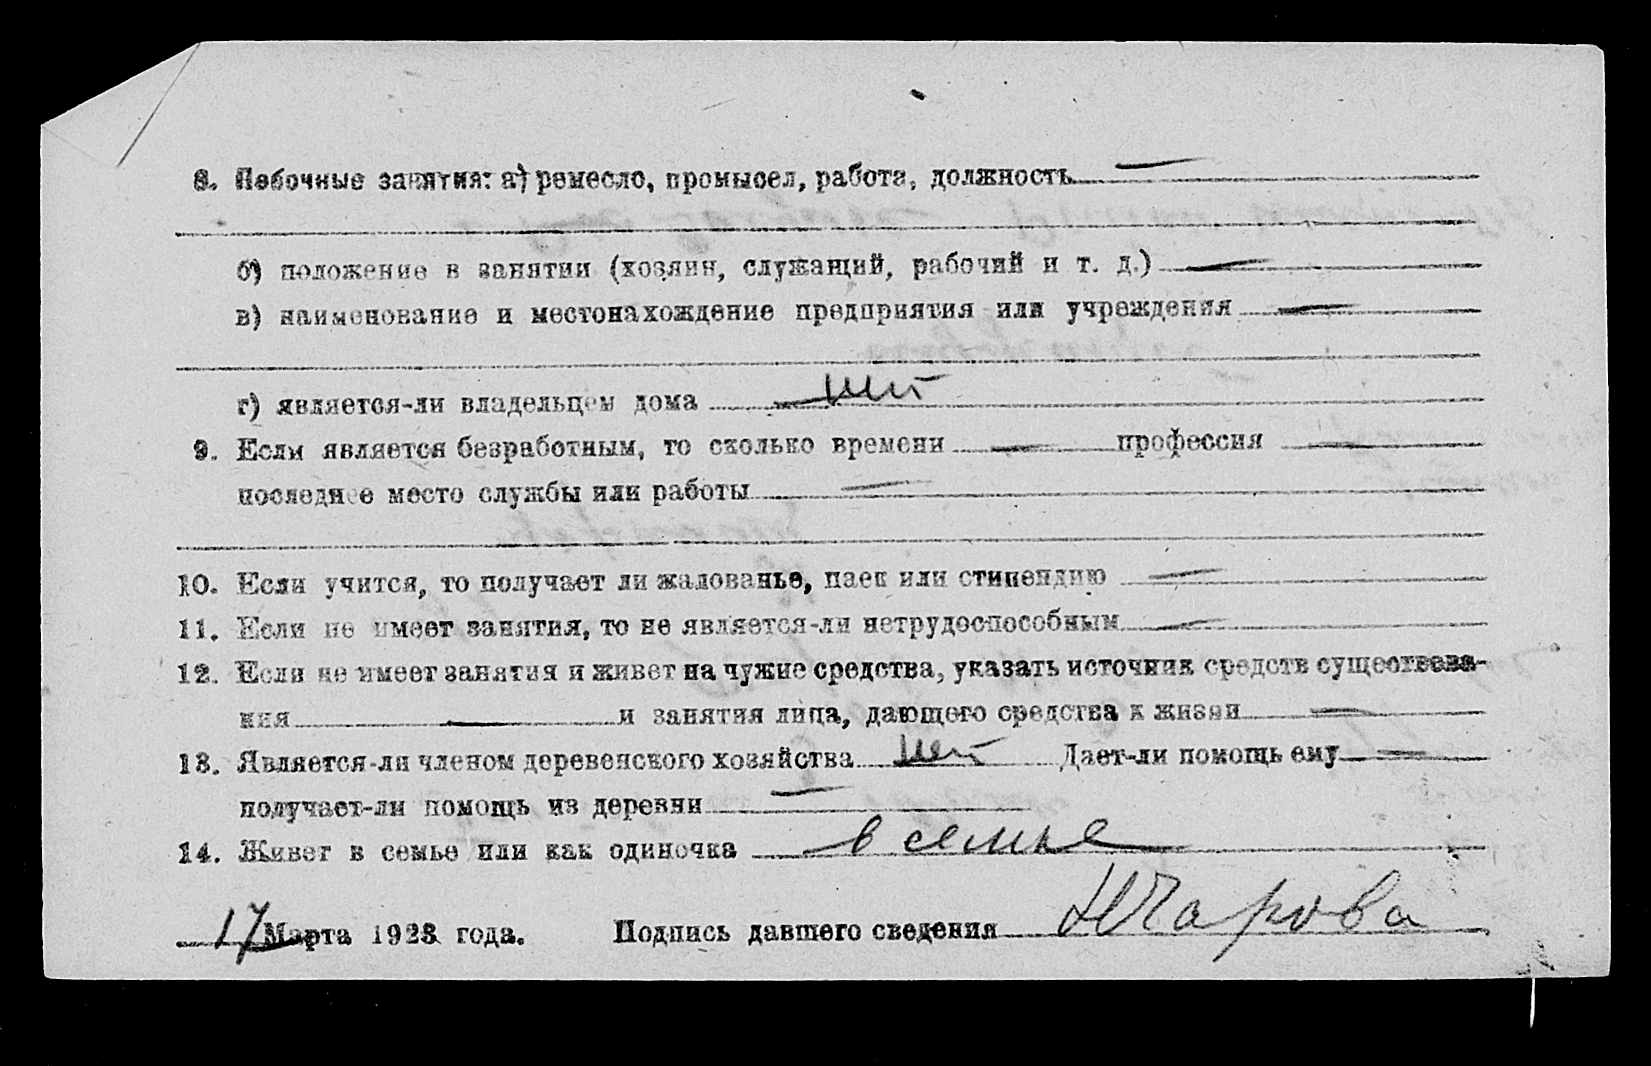 8. Побочные занятия: а) ремесло, промысел, работа, должность —
б) положение в занятии (хозяин, служащий, рабочий и т. д.) —
в) наименование и местонахождение предприятия или учреждения —
г) является-ли владельцем дома нет
9. Если является безработным, то сколько времени — профессия —
последнее место службы или работы —
10. Если учится, то получает ли жалованье, паек или стипендию —
11. Если не имеет занятия, то не является-ли нетрудоспособным —
12. Если не имеет занятия и живет на чужие средства, указать источник средств существова-
ния — и занятия лица, дающего средства к жизни —
13. Является-ли членом деревенского хозяйства нет Дает-ли помощь ему —
получает-ли помощь из деревни —
14. Живет в семье или как одиночка в семье
17 Марта 1923 года. Подпись давшего сведения